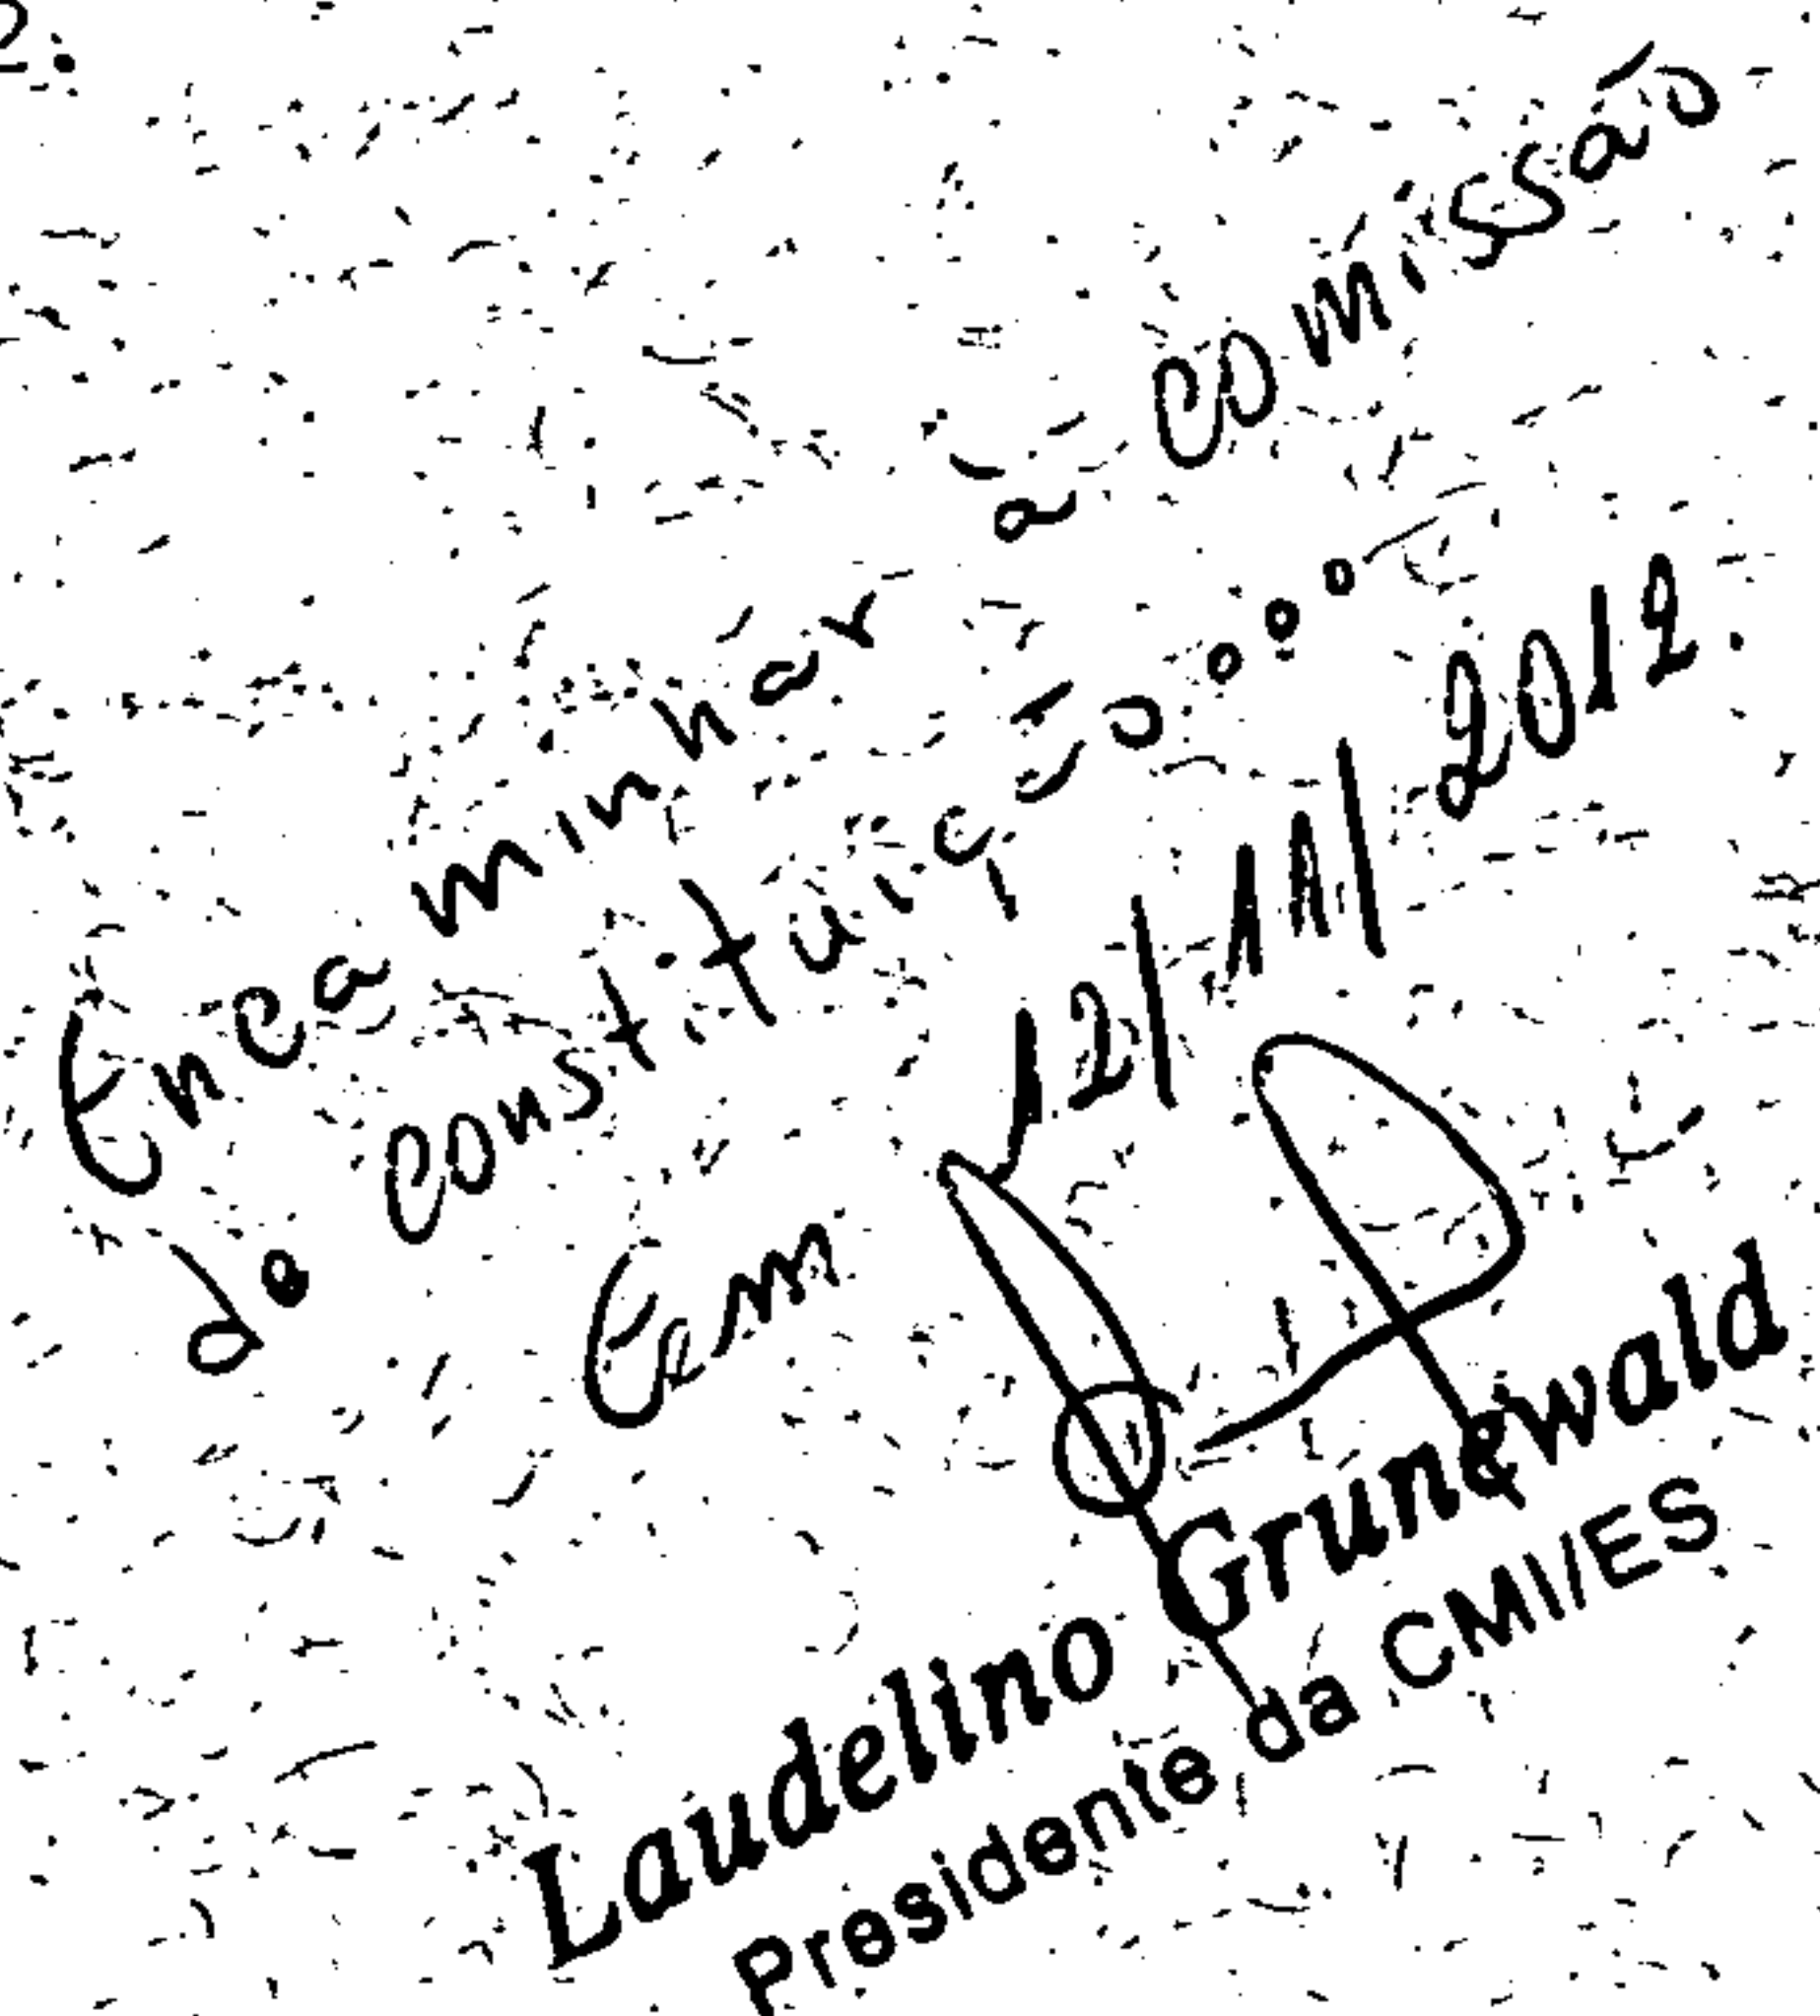 2.
Encaminhar à Comissão
de Constituição...
Em 12/11/2012.
Laudelino Grunewald
Presidente da CMI/ES